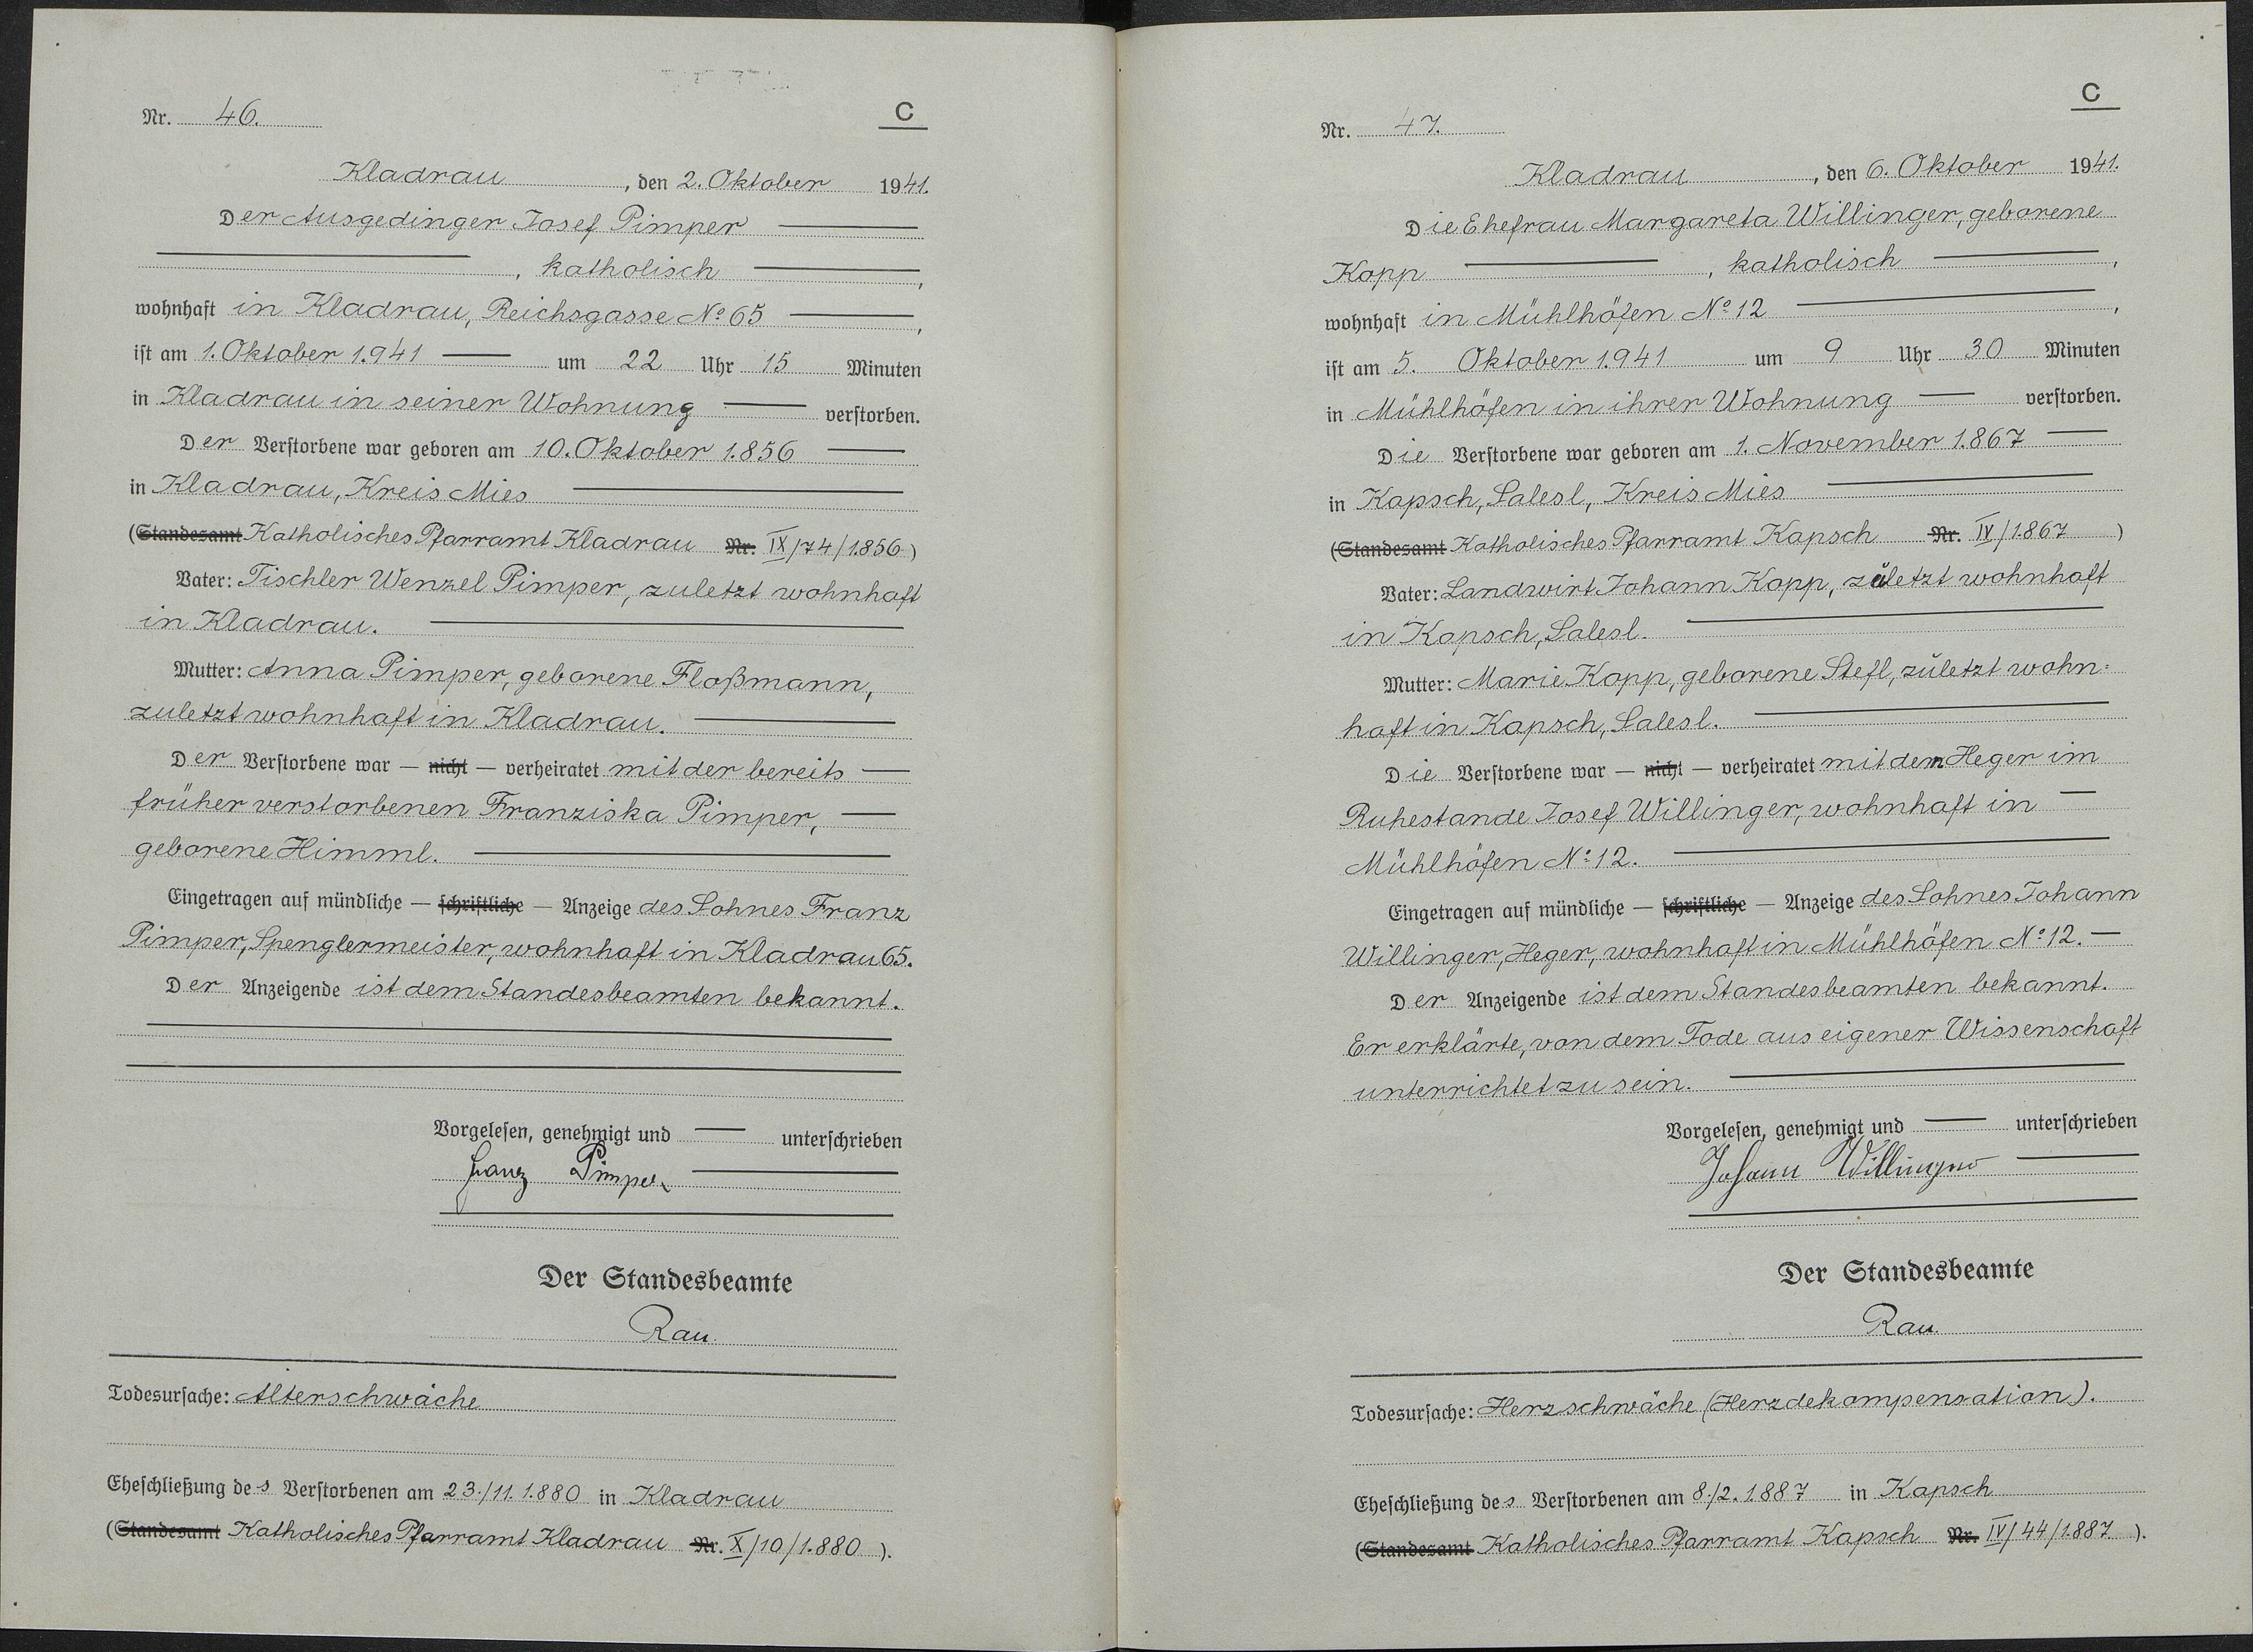 Nr. 46.
C
Kladrau, den 2. Oktober 1941.
Der Ausgedinger Josef Pimper
, katholisch ,
wohnhaft in Kladrau, Reichsgasse No 65 ,
ist am 1. Oktober 1.941 um 22 Uhr 15 Minuten
in Kladrau in seiner Wohnung verstorben.
Der Verstorbene war geboren am 10. Oktober 1.856
in Kladrau, Kreis Mies
(Standesamt Katholisches Pfarramt Kladrau Nr. IX/74/1.856)
Vater: Tischler Wenzel Pimper, zuletzt wohnhaft
in Kladrau.
Mutter: Anna Pimper, geborene Floßmann,
zuletzt wohnhaft in Kladrau.
Der Verstorbene war — nicht — verheiratet mit der bereits
früher verstorbenen Franziska Pimper,
geborene Himml.
Eingetragen auf mündliche — schriftliche — Anzeige des Sohnes Franz
Pimper, Spenglermeister, wohnhaft in Kladrau 65.
Der Anzeigende ist dem Standesbeamten bekannt.
Vorgelesen, genehmigt und — unterschrieben
Franz Pimper
Der Standesbeamte
Rau.
Todesursache: Alterschwäche
Eheschließung des Verstorbenen am 23./11. 1.880 in Kladrau
(Standesamt Katholisches Pfarramt Kladrau Nr. X/10/1.880).
Nr. 47.
C
Kladrau, den 6. Oktober 1941.
Die Ehefrau Margareta Willinger, geborene
Kopp , katholisch ,
wohnhaft in Mühlhöfen No 12 ,
ist am 5. Oktober 1.941 um 9 Uhr 30 Minuten
in Mühlhöfen in ihrer Wohnung — verstorben.
Die Verstorbene war geboren am 1. November 1.867
in Kapsch, Salesl, Kreis Mies
(Standesamt Katholisches Pfarramt Kapsch Nr. IV/1.867)
Vater: Landwirt Johann Kopp, zuletzt wohnhaft
in Kapsch, Salesl.
Mutter: Marie Kopp, geborene Stefl, zuletzt wohn-
haft in Kapsch, Salesl.
Die Verstorbene war — nicht — verheiratet mit dem Heger im
Ruhestande Josef Willinger, wohnhaft in —
Mühlhöfen No 12.
Eingetragen auf mündliche — schriftliche — Anzeige des Sohnes Johann
Willinger, Heger, wohnhaft in Mühlhöfen No 12. —
Der Anzeigende ist dem Standesbeamten bekannt.
Er erklärte, von dem Tode aus eigener Wissenschaft
unterrichtet zu sein.
Vorgelesen, genehmigt und — unterschrieben
Johann Willinger
Der Standesbeamte
Rau.
Todesursache: Herzschwäche (Herzdekompensation).
Eheschließung des Verstorbenen am 8./2. 1.887 in Kapsch
(Standesamt Katholisches Pfarramt Kapsch Nr. IV/44/1.887).